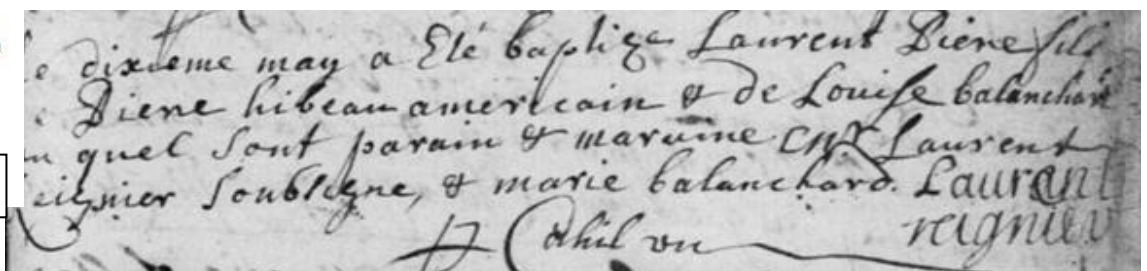 e dixieme may a Eté baptize Laurent Piere fils
Piere hibeau americain & de Louise balanchard
quel sont parain & maraine Laurent
eignier soubsigne, & marie balanchard. Laurant
reignier